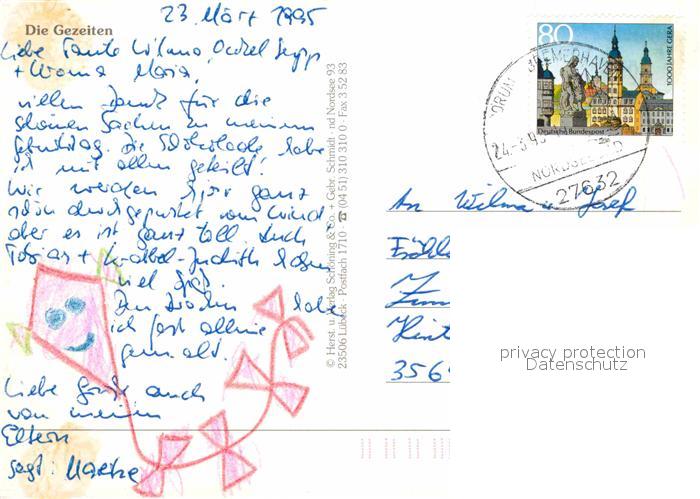 Die Gezeiten
23. März 1995
Liebe Tante Wilma, Onkel Sepp
+ Oma Maria,
vielen Dank für die
schönen Sachen zu meinem
Geburtstag. Die Schokolade habe
ich mit allen geteilt!
Wir werden hier ganz
schön durchgepustet vom Wind,
aber es ist ganz toll. Auch
Tobias + Krabbel-Judith haben
viel Spaß.
Den Drachen habe
ich fast alleine
gemalt.
Liebe Grüße auch
von meinen
Eltern
sagt:
© Herst. u. Verlag Schöning & Co. + Gebr. Schmidt · nd Nordsee 93
23506 Lübeck · Postfach 1710 · ☎ (04 51) 310 310 0 · Fax 3 52 83
80
1000 JAHRE GERA
Deutsche Bundespost
BREMERHAVEN
24.-3.95
27632
An Wilma u. Josef
privacy protection
Datenschutz